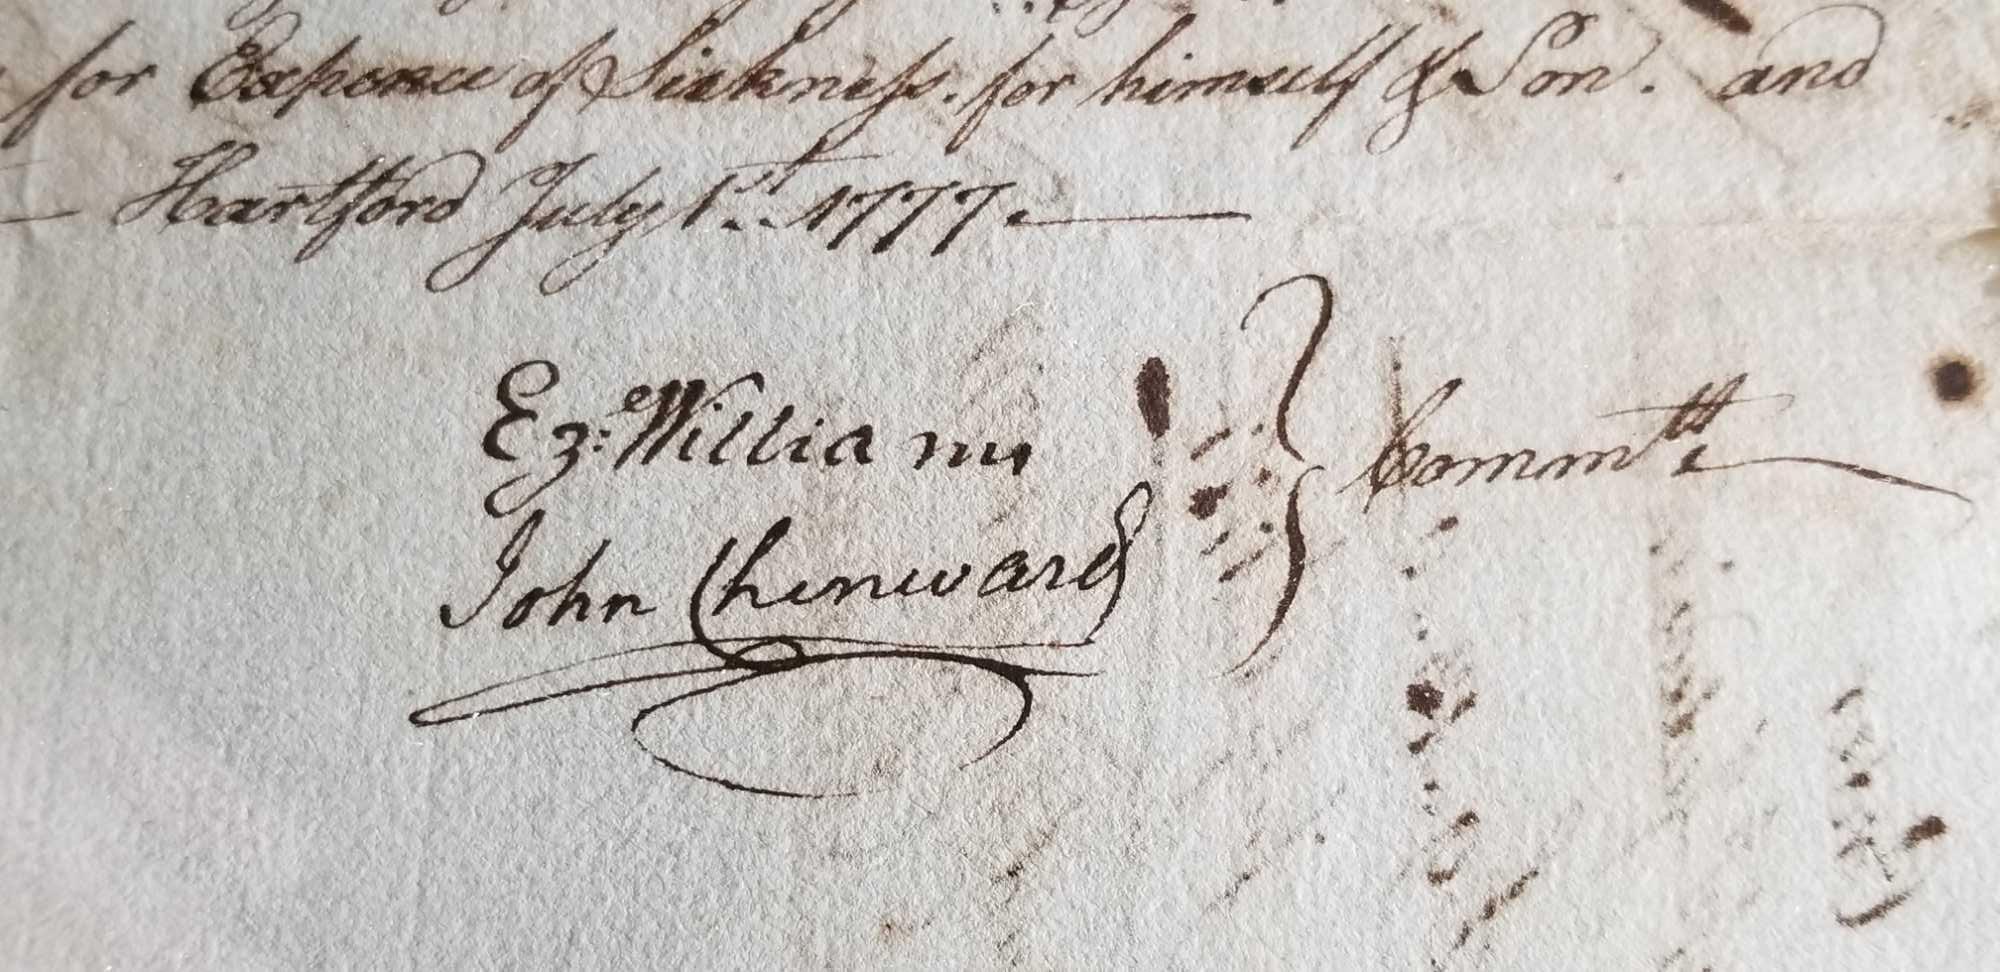 for Expence of Sickness. for himself & Son. and
Hartford July 1st. 1777.
Ez: Williams
John Chenward
Committe